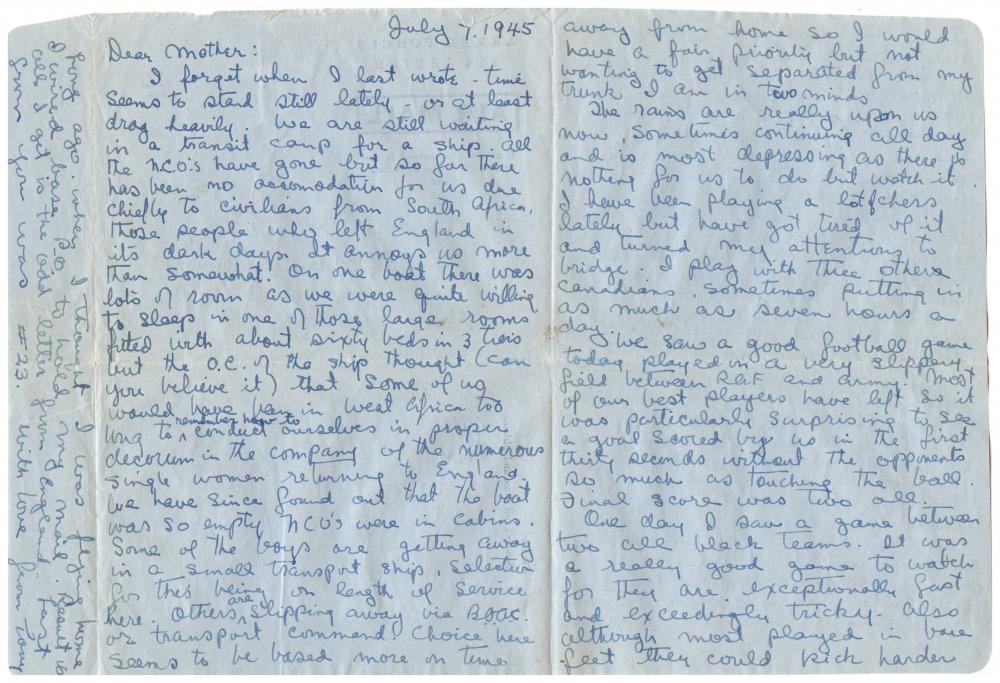 July 7. 1945
Dear Mother:
I forget when I last wrote - time
seems to stand still lately - or at least
drag heavily. We are still waiting
in a transit camp for a ship. All
the NCO's have gone but so far there
has been no accomodation for us due
chiefly to civilians from South Africa,
those people who left England in
its dark days. It annoys us more
than somewhat. On one boat there was
lots of room as we were quite willing
to sleep in one of those large rooms
fitted with about sixty beds in 3 tiers
but the O.C. of the ship thought (can
you believe it) that some of us
would have been in West Africa too
long to remember how to conduct ourselves in proper
decorum in the company of the numerous
single women returning to England.
We have since found out that the boat
was so empty NCO's were in cabins.
Some of the boys are getting away
in a small transport ship, selection
for this being on length of service
here. Others are slipping away via BOAC
or transport command. Choice here
seems to be based more on time
away from home so I would
have a fair piority but not
wanting to get separated from my
trunk I am in two minds
The rains are really upon us
now, sometimes continuing all day
and is most depressing as there is
nothing for us to do but watch it.
I have been playing a lot of chess
lately but have got tired of it
and turned my attentions to
bridge. I play with three others
Canadians, sometimes putting in
as much as seven hours a
day.
We saw a good football game
today played in a very slippery
field between RAF and army. Most
of our best players have left so it
was particularly surprising to see
a goal scored by us in the first
thirty seconds without the opponents
so much as touching the ball.
Final score was two all.
One day I saw a game between
two all black teams. It was
a really good game to watch
for they are exceptionally fast
and exceedingly tricky. Also
although most played in bare
feet they could kick harder
Long ago, when I thought I was flying home
I wired base P.O. to held my mail. Result is
all I get is the odd letter from England. Last
from you was #23. With love from Tony